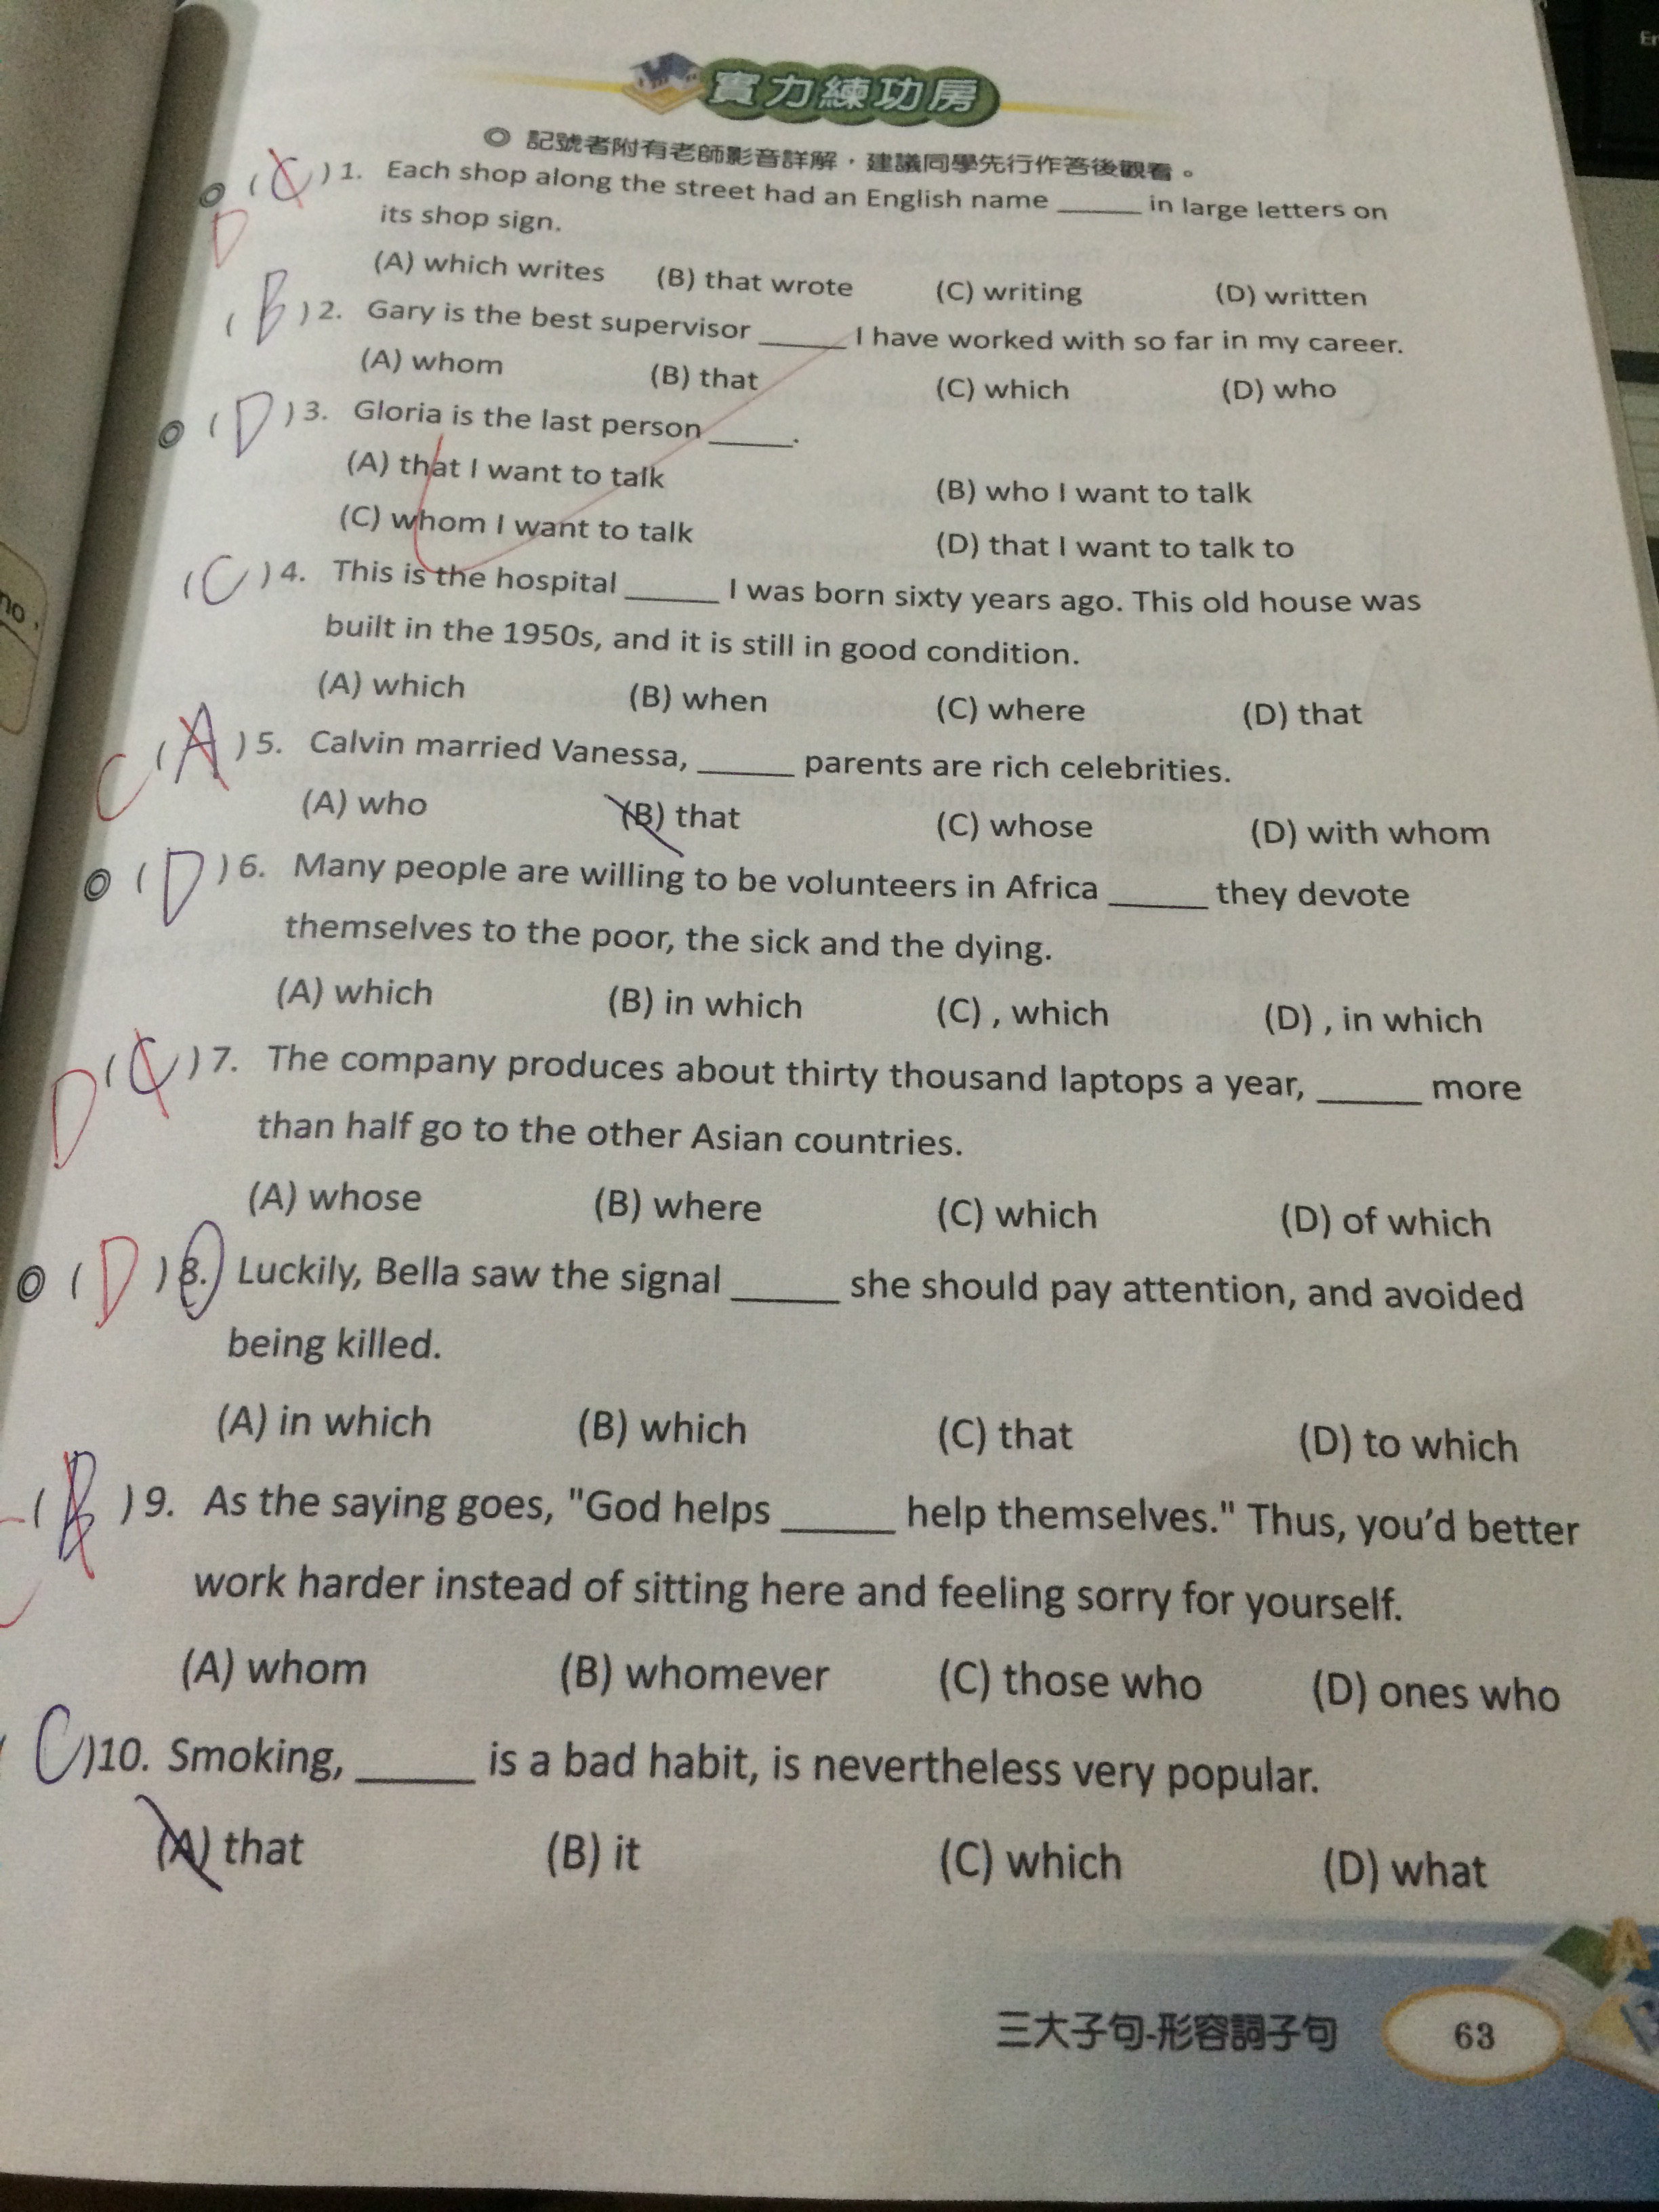 實力練功房
◎ 記號者附有老師影音詳解，建議同學先行作答後觀看。
◎ ( C ) 1. Each shop along the street had an English name _____ in large letters on
D
its shop sign.
(A) which writes (B) that wrote (C) writing (D) written
( B ) 2. Gary is the best supervisor _____ I have worked with so far in my career.
(A) whom (B) that (C) which (D) who
◎ ( D ) 3. Gloria is the last person _____.
(A) that I want to talk (B) who I want to talk
(C) whom I want to talk (D) that I want to talk to
( C ) 4. This is the hospital _____ I was born sixty years ago. This old house was
built in the 1950s, and it is still in good condition.
(A) which (B) when (C) where (D) that
C ( A ) 5. Calvin married Vanessa, _____ parents are rich celebrities.
(A) who (B) that (C) whose (D) with whom
◎ ( D ) 6. Many people are willing to be volunteers in Africa _____ they devote
themselves to the poor, the sick and the dying.
(A) which (B) in which (C) , which (D) , in which
D ( C ) 7. The company produces about thirty thousand laptops a year, _____ more
than half go to the other Asian countries.
(A) whose (B) where (C) which (D) of which
◎ ( D ) 8. Luckily, Bella saw the signal _____ she should pay attention, and avoided
being killed.
(A) in which (B) which (C) that (D) to which
( B ) 9. As the saying goes, "God helps _____ help themselves." Thus, you'd better
work harder instead of sitting here and feeling sorry for yourself.
(A) whom (B) whomever (C) those who (D) ones who
C )10. Smoking, _____ is a bad habit, is nevertheless very popular.
(A) that (B) it (C) which (D) what
三大子句-形容詞子句 63